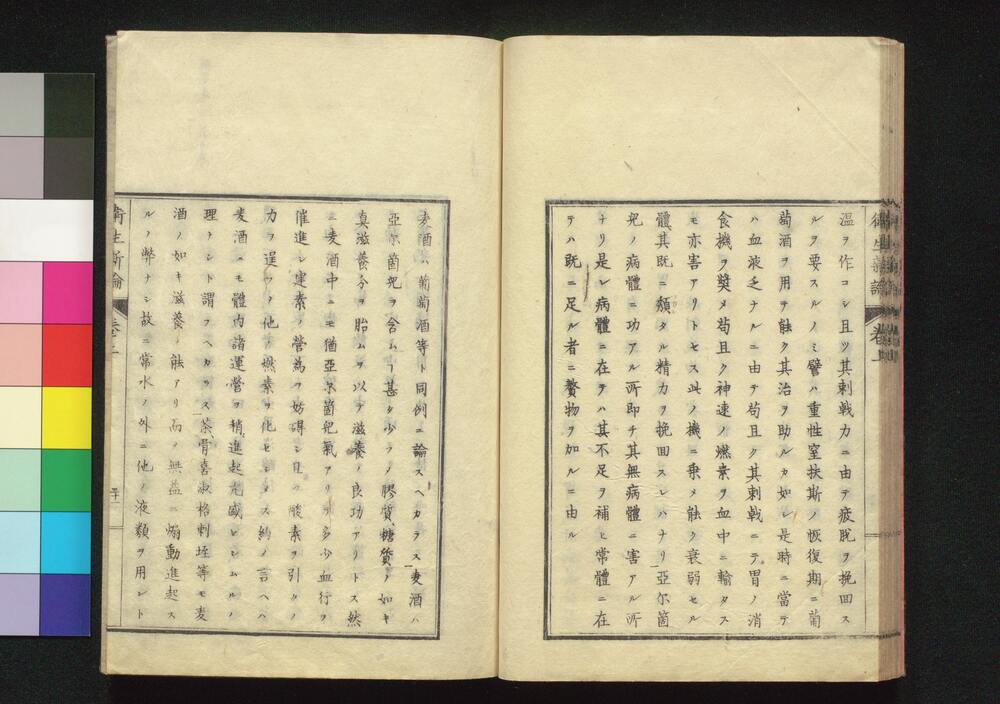 温ヲ作コシ且ツ其刺戟力ニ由テ疲脱ヲ挽回ス
ルヲ要スルノミ譬ハ重性窒扶斯ノ恢復期ニ葡
萄酒ヲ用テ能ク其治ヲ助ルカ如シ是時ニ當テ
ハ血液乏ナルニ由テ苟且ク其刺戟ニテ胃ノ消
食機ヲ奬メ苟且ク神速ノ燃素ヲ血中ニ輸タス
モ亦害アリトセス此ノ機ニ乗メ能ク衰弱セル
體其既ニ頽タル精力ヲ挽回スレハナリ亞尓箇
兒ノ病體ニ功アル所即チ其無病體ニ害アル所
ナリ是レ病體ニ在テハ其不足ヲ補ヒ常體ニ在
テハ既ニ足ル者ニ贅物ヲ加ルニ由ル
衛生新論
卷上
麦酒ハ葡萄酒等ト同例ニ論スヘカラス麦酒ハ
亞尓箇兒ヲ含ムヿ甚タ少ク乄膠質糖質ノ如キ
真滋養分ヲ胎ムヲ以テ滋養ノ良功アリトス然
ニ麦酒中ニモ猶亞尓箇兒氣アリテ多少血行ヲ
催進シ運素ノ營為ヲ妨碍シ且ツ酸素ヲ引タノ
力ヲ逞フ乄他ノ燃素ヲ化セシメス約乄言ヘハ
麦酒ニモ體内諸運營ヲ稍進起亢盛セシムルノ
理ナシト謂フヘカラス茶骨喜淑格剌垤等モ麦
酒ノ如キ滋養ノ能アリ而乄無益ニ煽動進起ス
ルノ弊ナシ故ニ常水ノ外ニ他ノ液類ヲ用ント
衛生新論
卷上